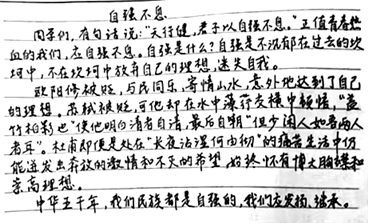 自强不息
同学们，有句话说：“天行健，君子以自强不息。”正值青春热
血的我们，应自强不息。自强是什么？自强是不沉郁在过去的坎
坷中，不在坎坷中放弃自己的理想，迷失自我。
欧阳修被贬，与民同乐，寄情山水，意外地达到了自己
的理想。苏轼被贬，可他却在水中藻荇交横中解悟，“盖
竹柏影也”使他明白清者自清，最后自嘲“但少闲人如吾两人
者耳”。杜甫即便是处在“长夜沾湿何由彻”的痛苦生活中仍
能迸发出奔放的激情和不灭的希望，始终怀有博大胸襟和
崇高理想。
中华五千年，我们民族都是自强的，我们应发扬、继承。